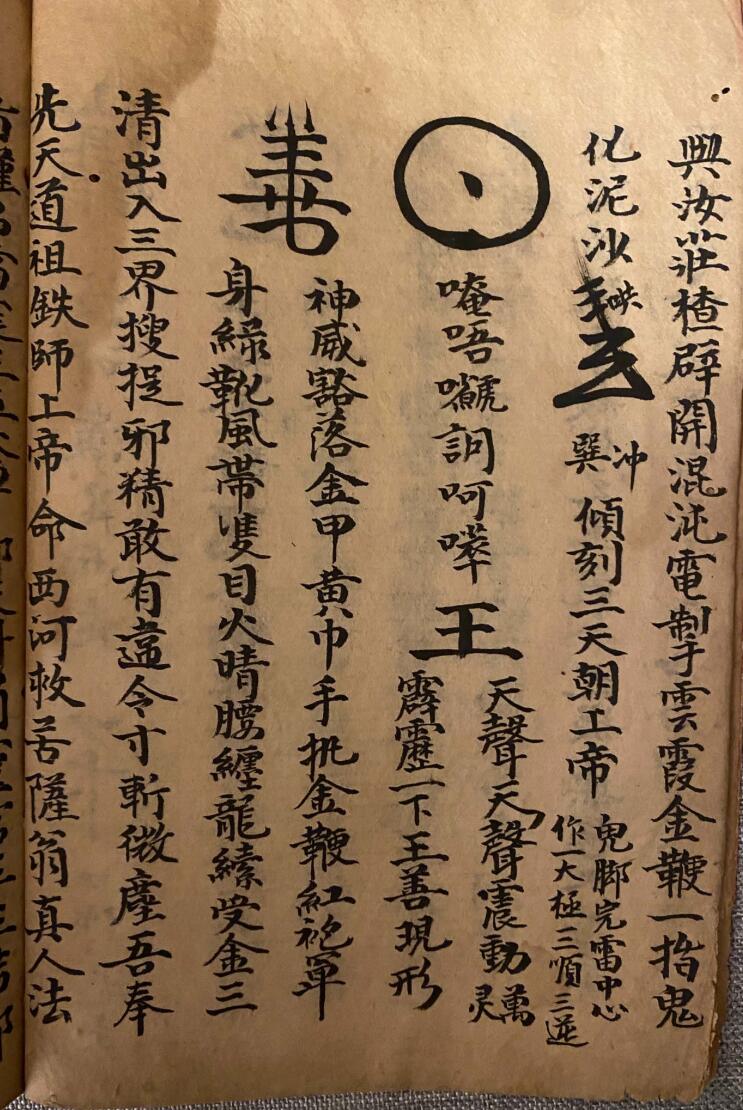 與汝莊楂辟開混沌電掣雲霞金鞭一指鬼
化泥沙
冲
巽
傾刻三天朝上帝
鬼脚完雷中心
作一大極三順三逆
唵唔
訶呵
王
天聲天聲震動萬灵
霹靂一下王善現形
神威豁落金甲黃巾手执金鞭紅袍罩
身綠靴風帶雙目火晴腰纏龍縤受金三
清出入三界搜捉邪精敢有違令寸斬微塵吾奉
先天道祖鉄師上帝命西河救苦薩翁真人法